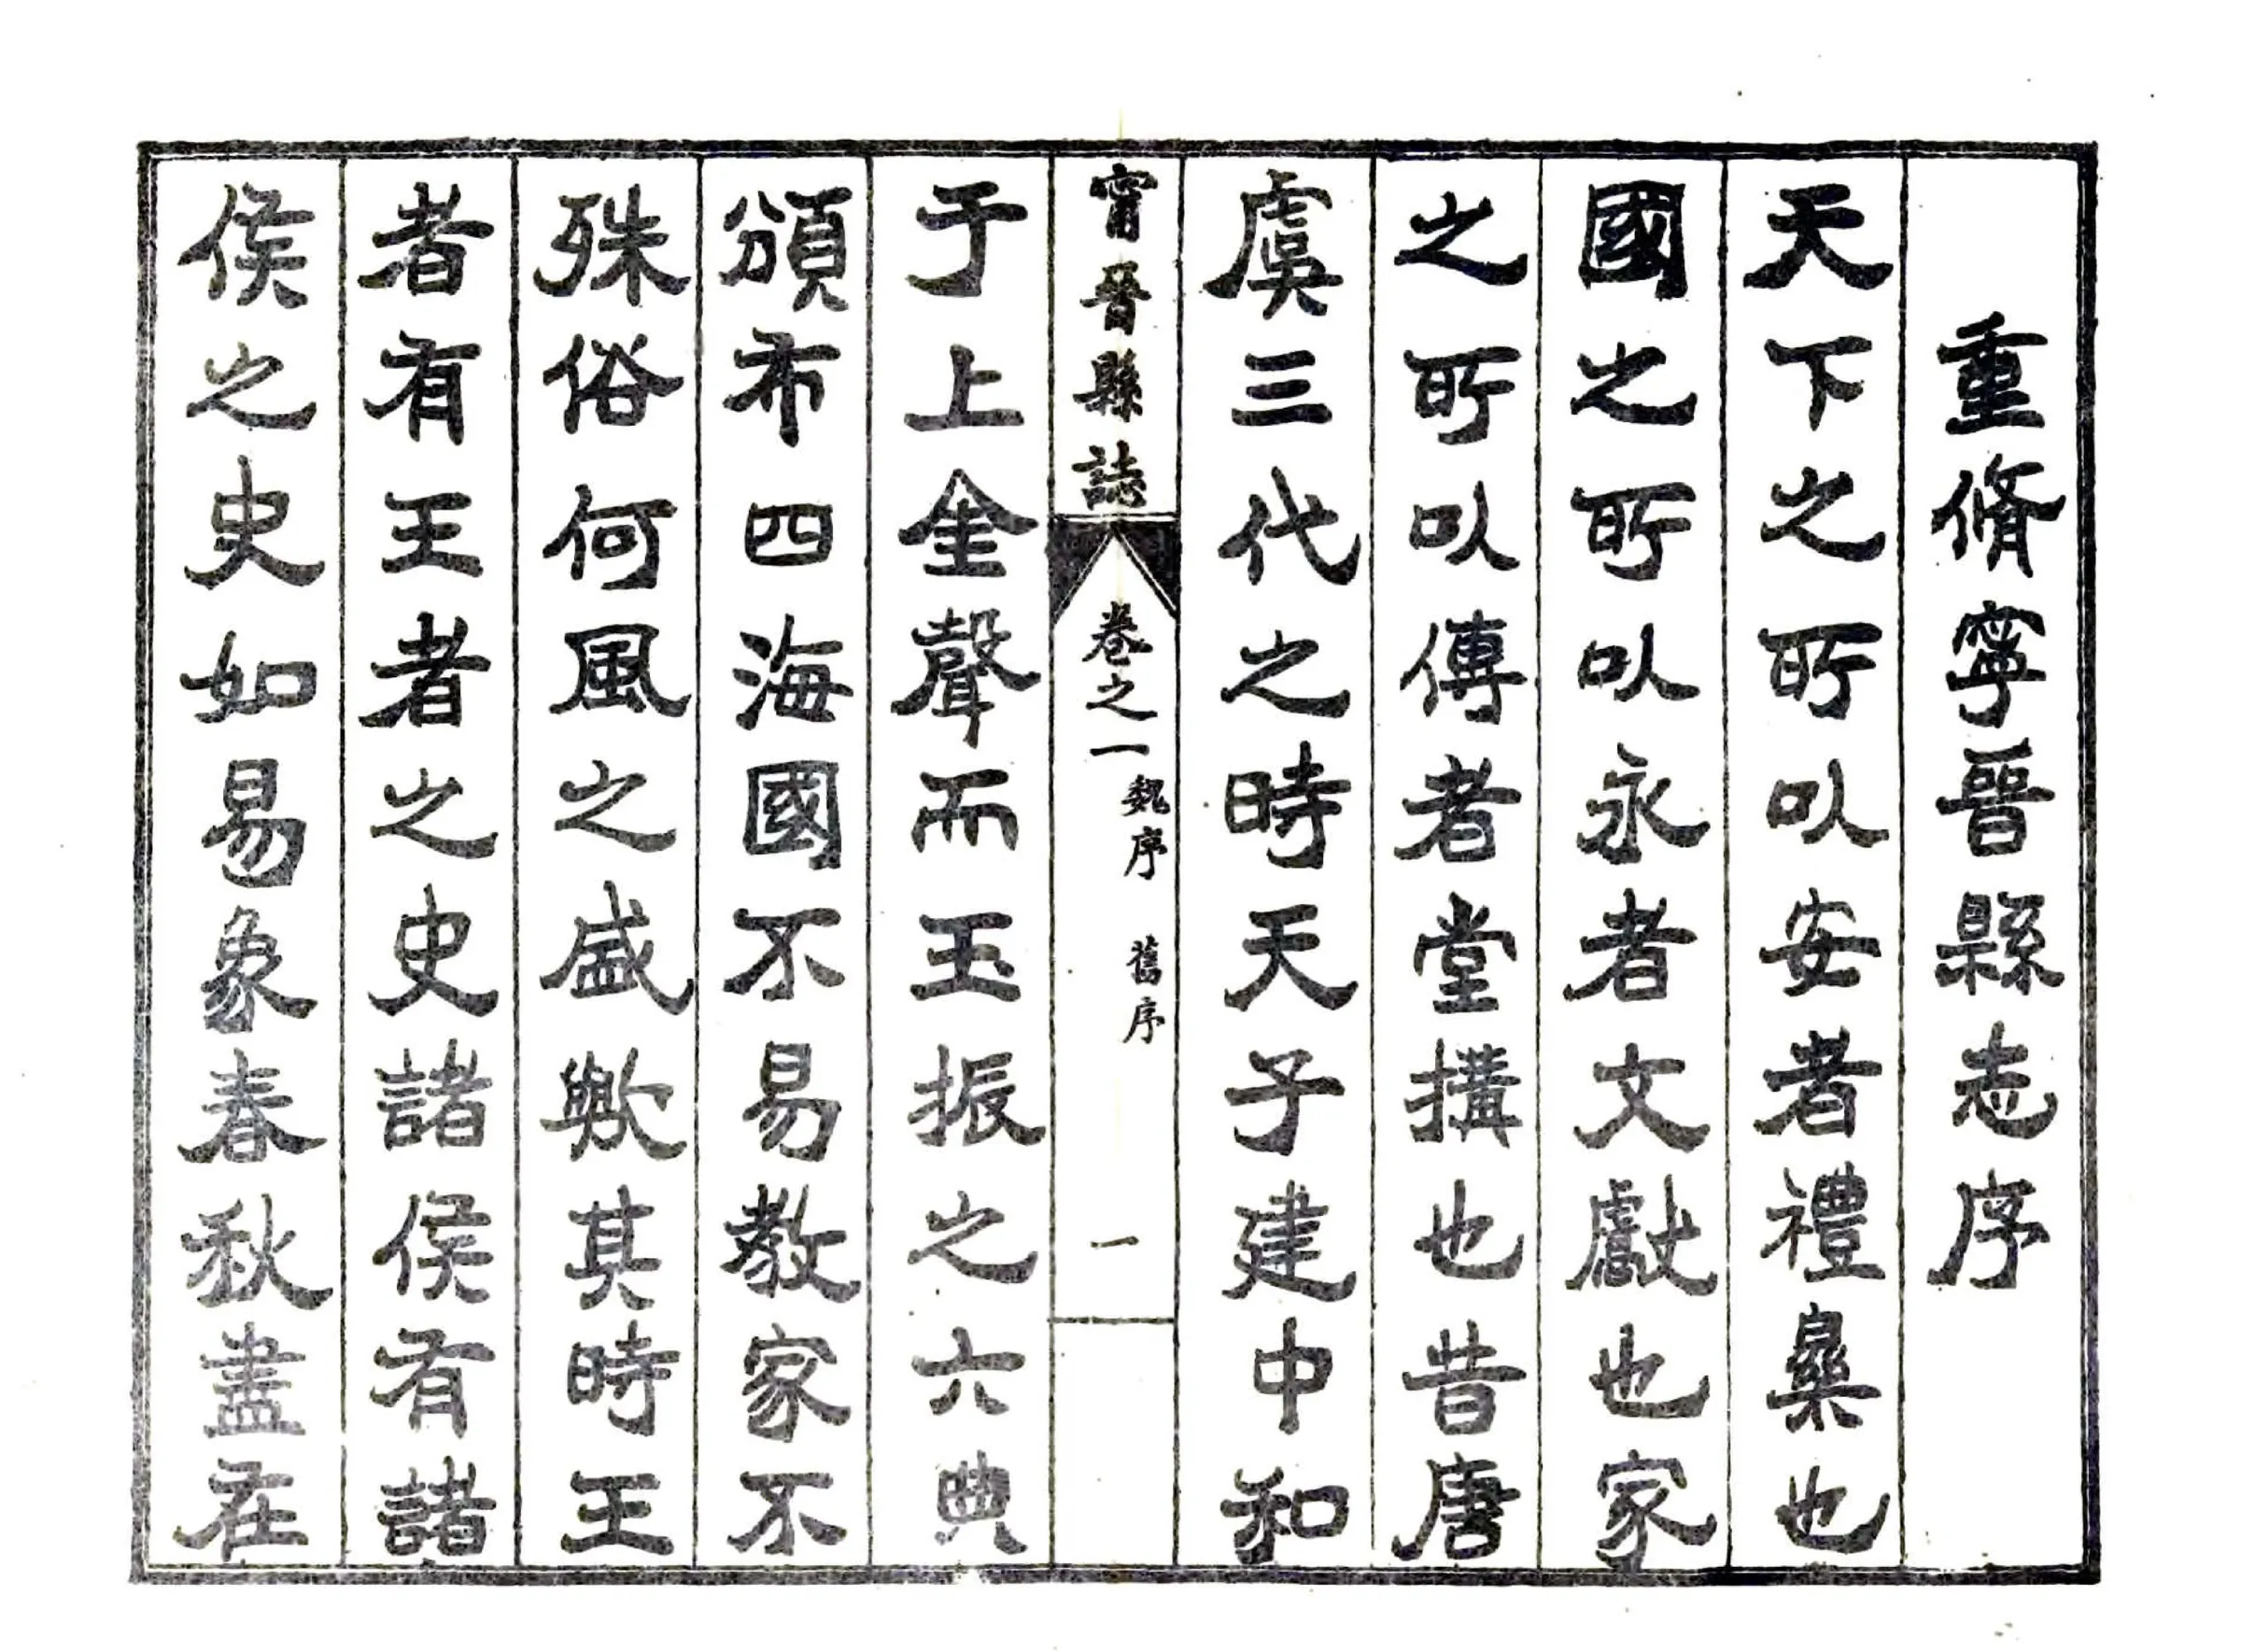 重脩寧晉縣志序
天下之所以安者禮彝也
國之所以永者文獻也家
之所以傳者堂搆也昔唐
虞三代之時天子建中和
甯晉縣誌 卷之一 魏序 舊序 一
于上金聲而玉振之六典
頒布四海國不易教家不
殊俗何風之盛歟其時王
者有王者之史諸侯有諸
侯之史如易象春秋盡在